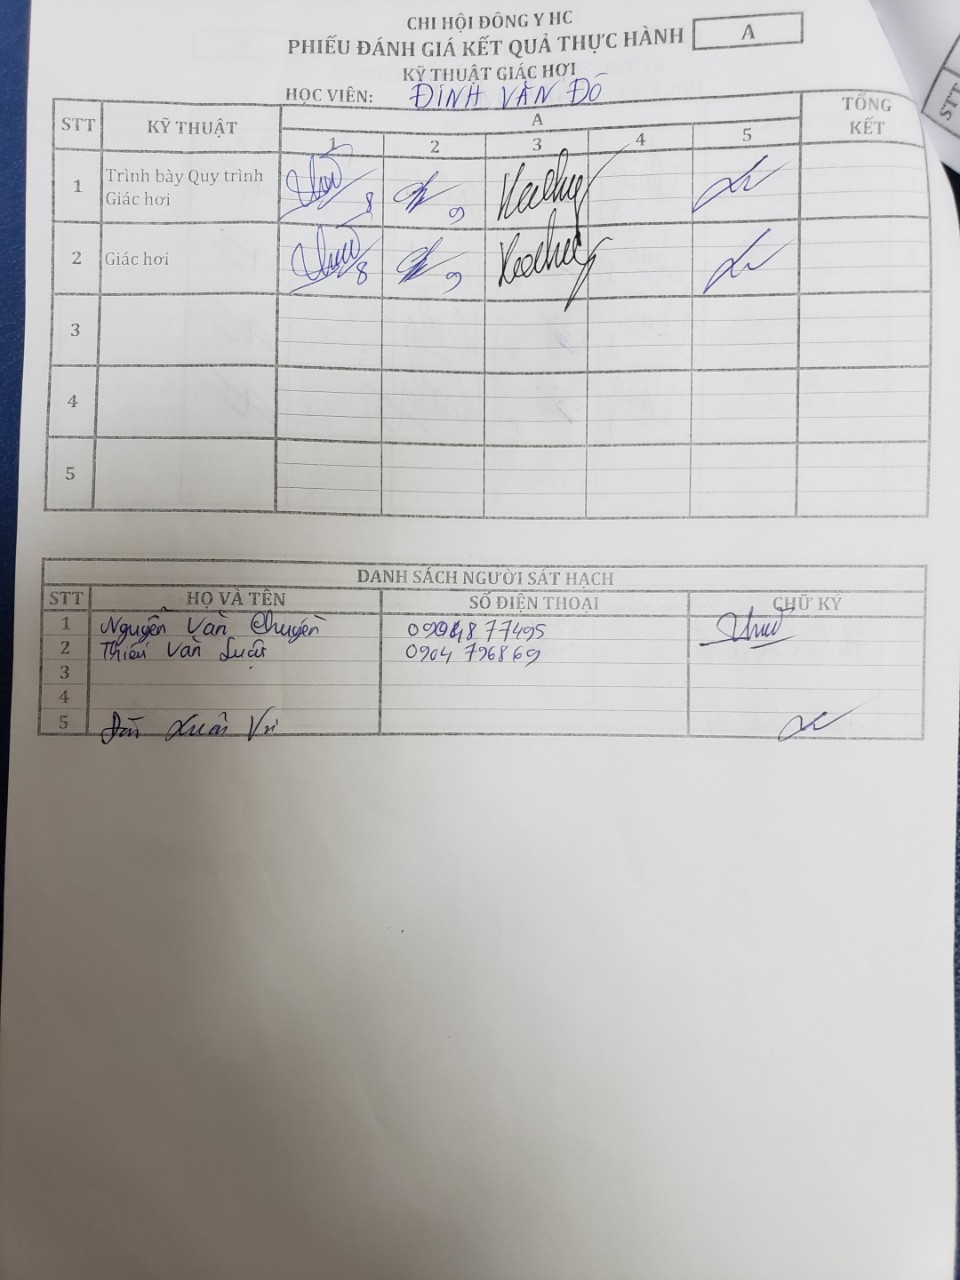 CHI HỘI ĐÔNG Y HC
PHIẾU ĐÁNH GIÁ KẾT QUẢ THỰC HÀNH
A
KỸ THUẬT GIÁC HƠI
HỌC VIÊN: ĐINH VĂN ĐÔ
STT KỸ THUẬT A TỔNG KẾT
1 2 3 4 5
1 Trình bày Quy trình
Giác hơi
8 9
2 Giác hơi
8 9
3
4
5
DANH SÁCH NGƯỜI SÁT HẠCH
STT HỌ VÀ TÊN SỐ ĐIỆN THOẠI CHỮ KÝ
1 Nguyễn Văn Chuyên
2 Văn 0904 796869
3
4
5 Xuân
STT